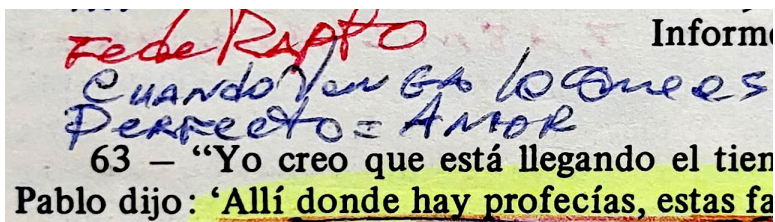 Fe de RAPTO
Informe
CUANDO VENGA lo que es
PERFECTO = AMOR
63 – “Yo creo que está llegando el tien
Pablo dijo: ‘Allí donde hay profecías, estas fa